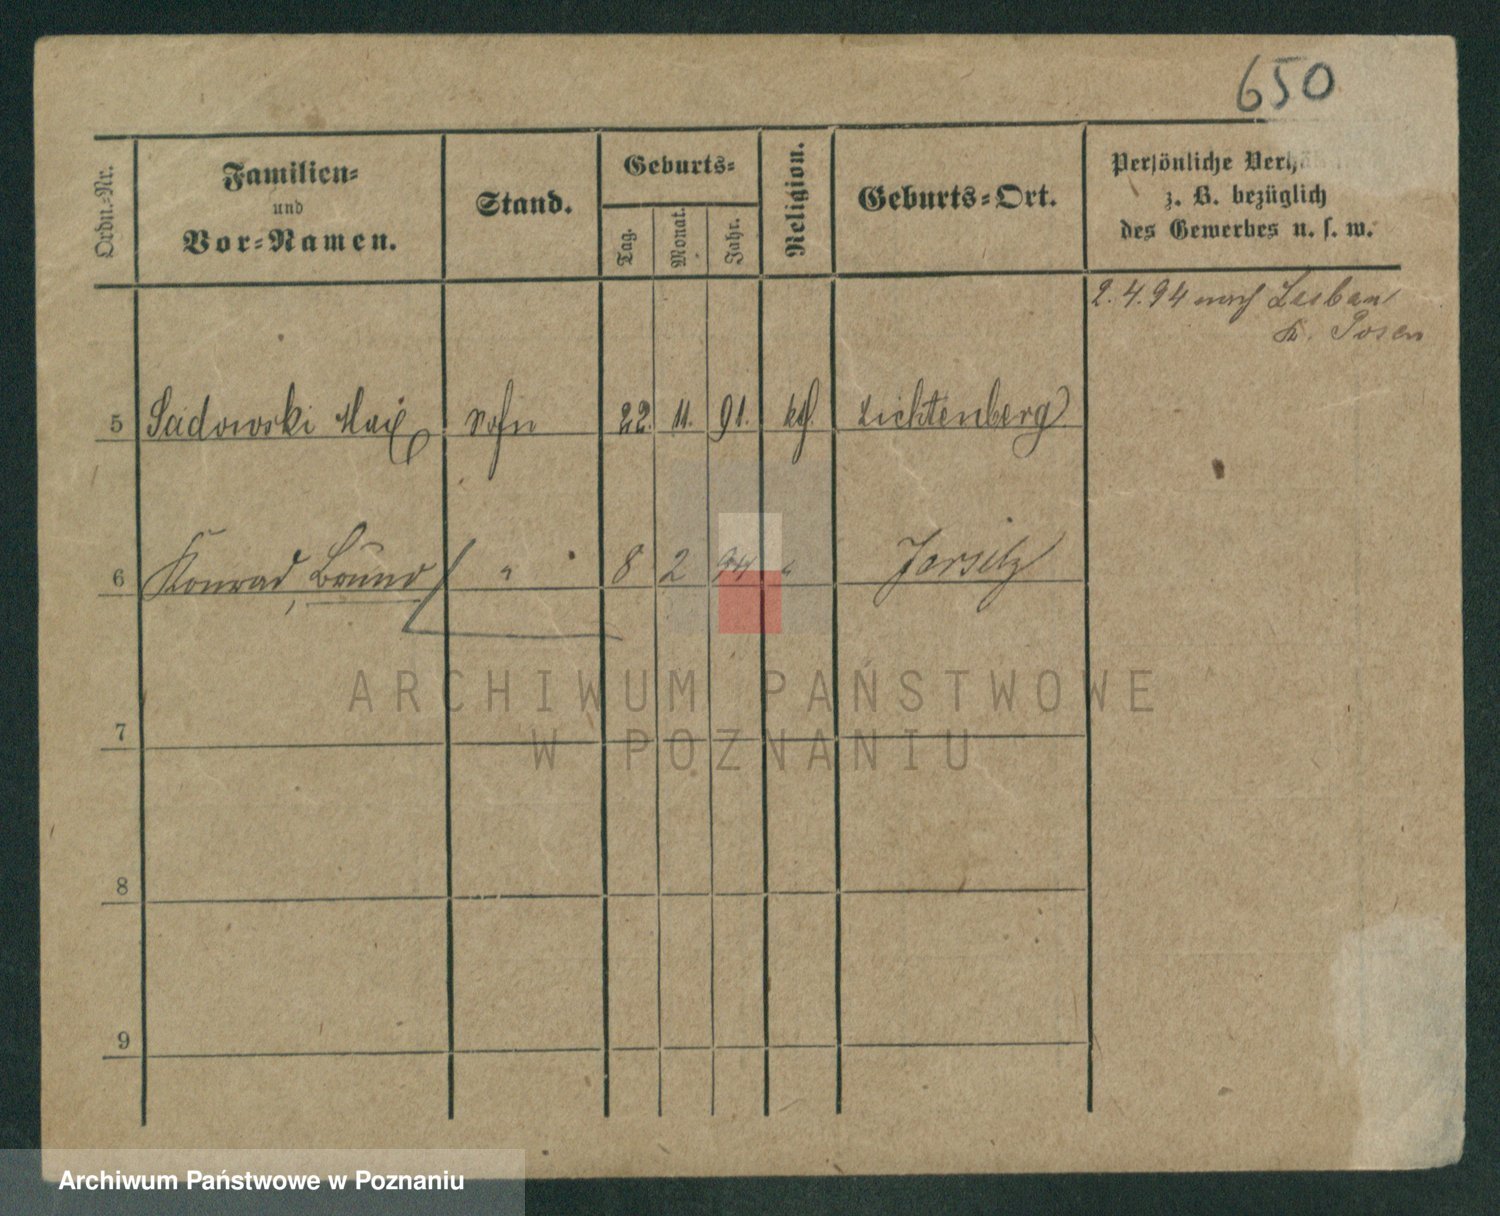 650
Ordn.-Nr.
Familien-
und
Vor-Namen.
Stand.
Geburts-
Tag.
Monat.
Jahr.
Religion.
Geburts-Ort.
Persönliche Verhä
z. B. bezüglich
des Gewerbes u. s. w.
2. 4. 94 nach
Posen
5 Sadowski Max Sohn 22. 11. 91. kth. Lichtenberg
6 Konrad, Bruno " 8 2 94 " Jersitz
7
8
9
ARCHIWUM PAŃSTWOWE
W POZNANIU
Archiwum Państwowe w Poznaniu